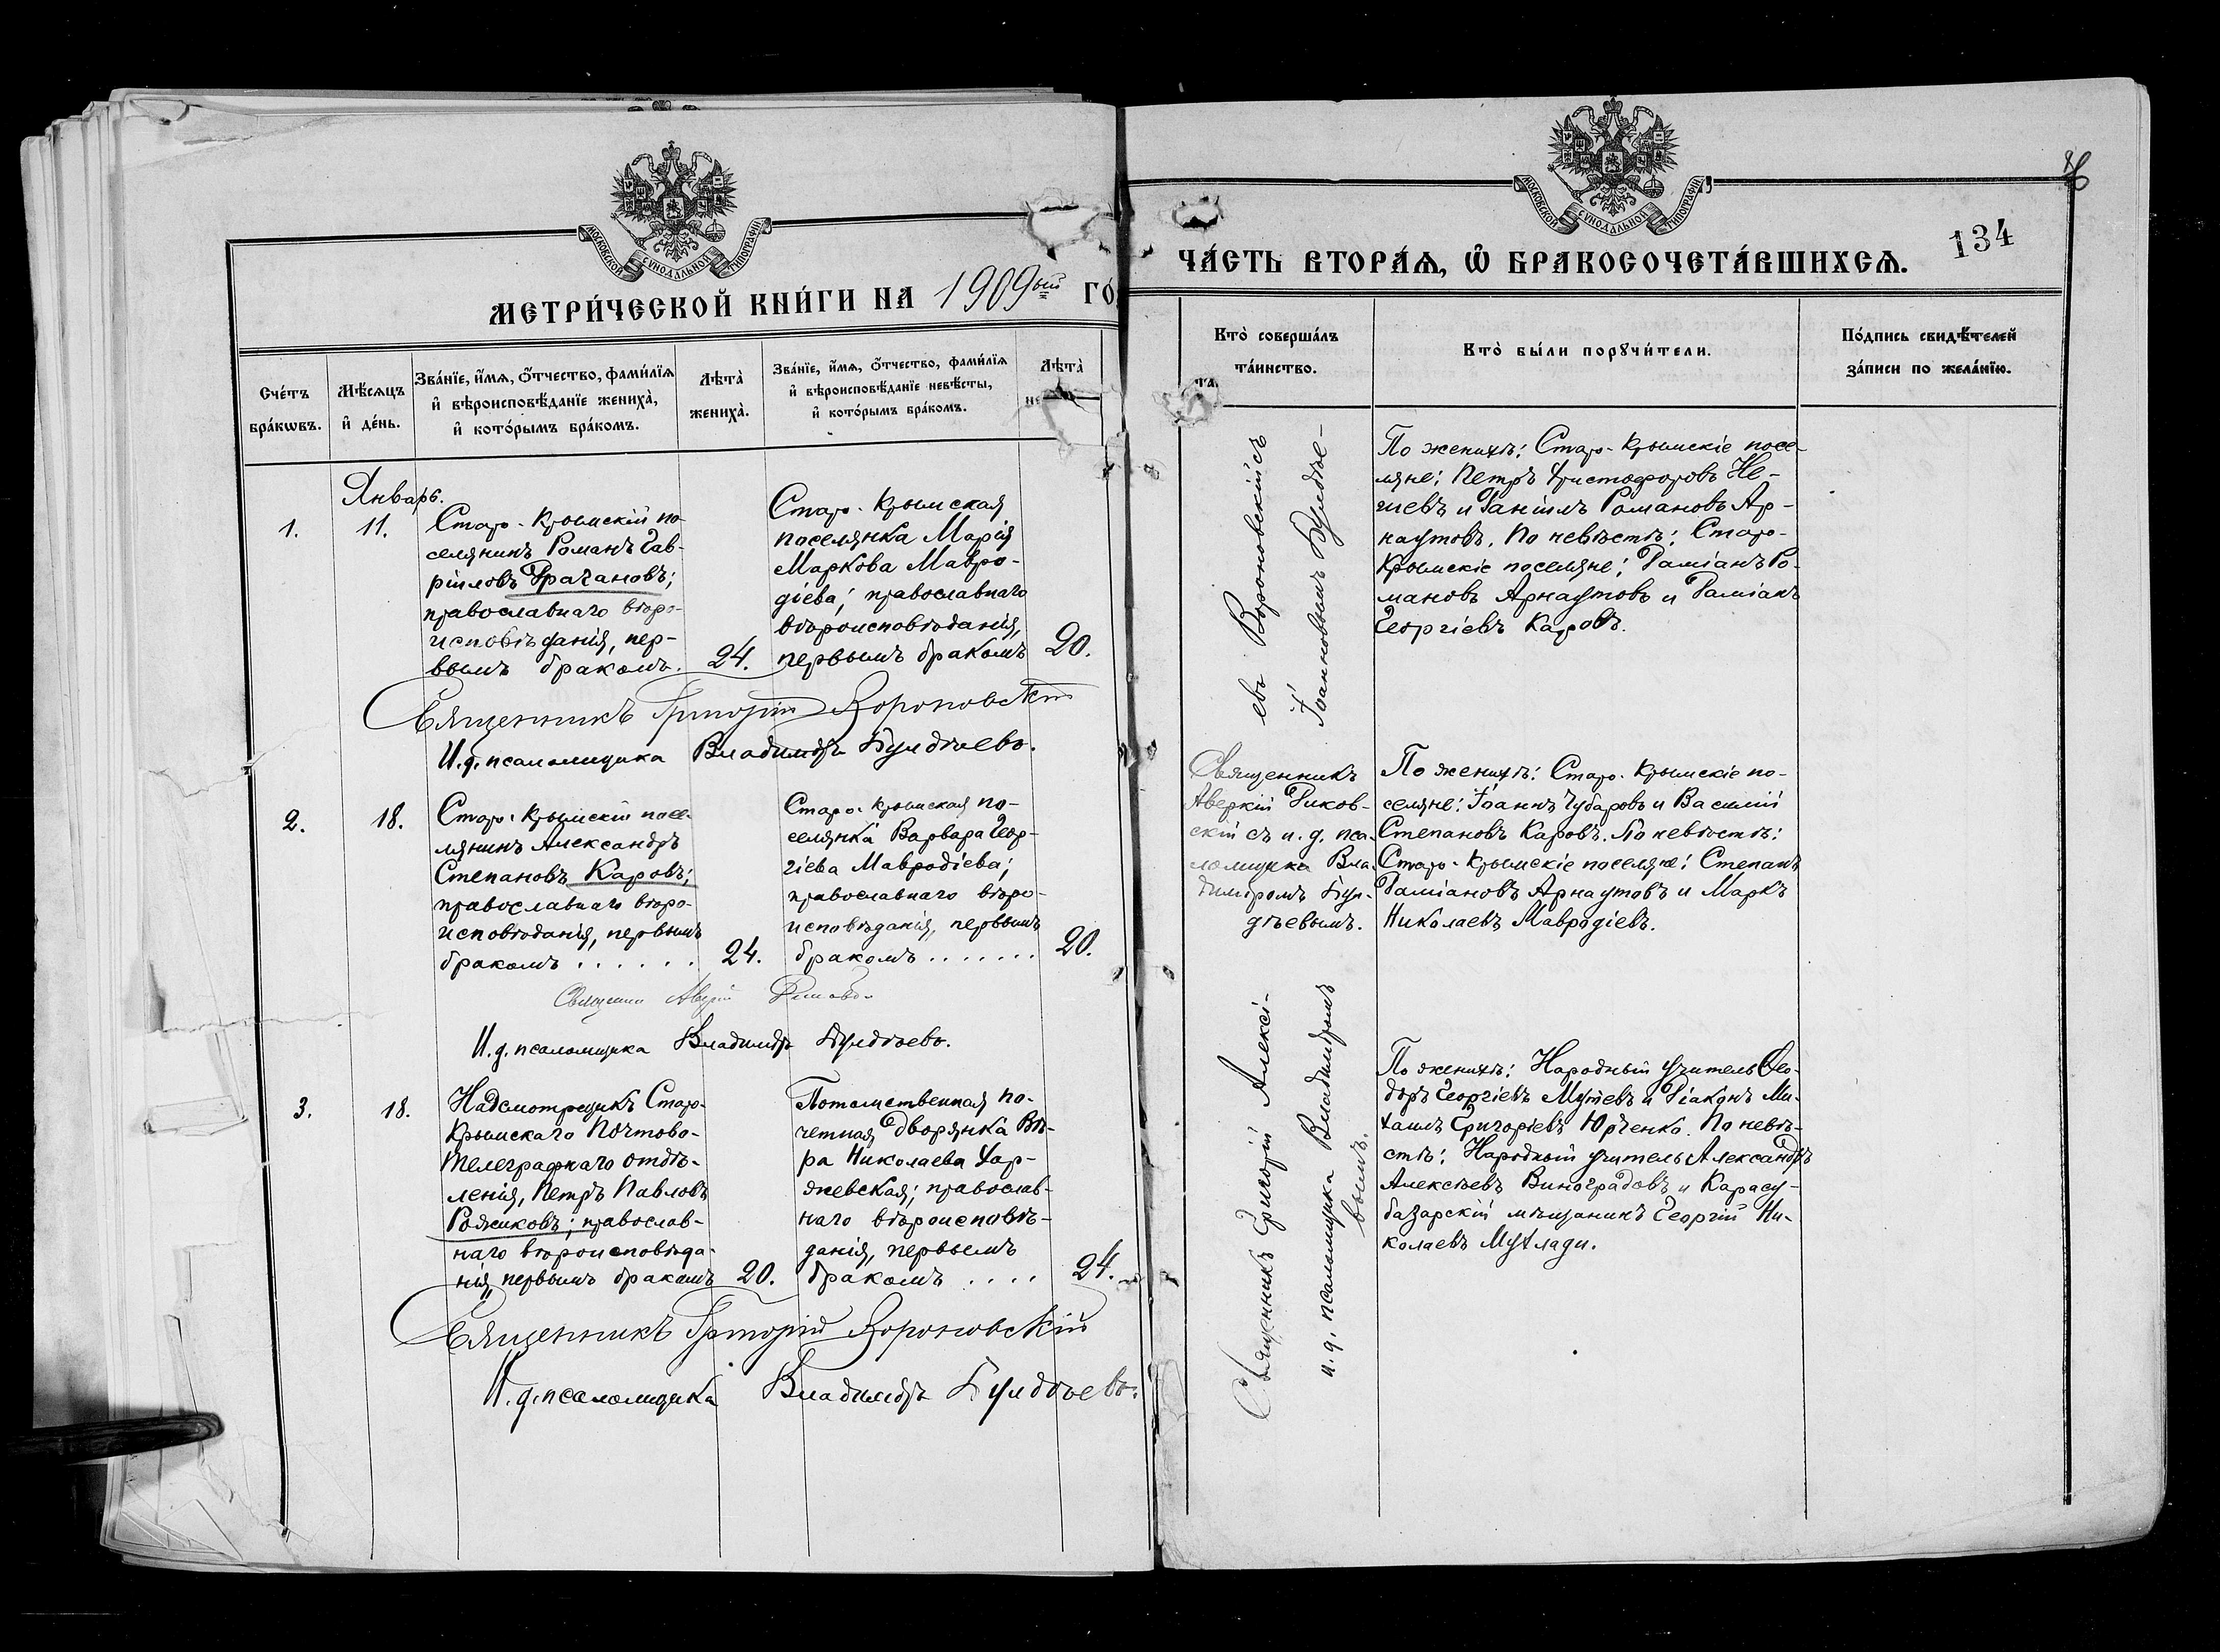 МЕТРИ́ЧЕСКОЙ КНИ́ГИ НА 1909ый ГО́
Сче́тъ бра́кѡвъ.
Мѣ́сяцъ и҆ де́нь.
Зва́нїе, и҆́мя, ѻ҆́тчество, фами́лїя
и҆ вѣроисповѣ́данїе жениха̀,
и҆ кото́рымъ бра́комъ.
Лѣта̀
жениха̀.
Зва́нїе, и҆́мя, ѻ҆́тчество, фами́лїя
и҆ вѣроисповѣ́данїе невѣ́сты,
и҆ кото́рымъ бра́комъ.
Лѣта̀
не
Январь.
1.
11.
Старо-Крымскій по-
селянинъ Романъ Гав-
ріиловъ Драчановъ;
православнаго вѣро-
исповѣданія, пер-
вымъ бракомъ.
24.
Старо-Крымская
поселянка Марія
Маркова Мавро-
діева; православнаго
вѣроисповѣданія,
первымъ бракомъ
20.
Священникъ Григорій Вороновскій
И.д. псаломщика Владиміръ Булдѣевъ.
2.
18.
Старо-Крымскій посе-
лянинъ Александръ
Степановъ Каровъ;
православнаго вѣро-
исповѣданія, первымъ
бракомъ . . . . . .
24.
Старо-Крымская по-
селянка Варвара Геор-
гіева Мавродіева;
православнаго вѣро-
исповѣданія, первымъ
бракомъ . . . . . . .
20.
И.д. псаломщика Владиміръ Булдѣевъ.
3.
18.
Надсмотрщикъ Старо-
Крымскаго Почтово-
Телеграфнаго отдѣ-
ленія, Петръ Павловъ
Рожиковъ; православ-
наго вѣроисповѣда-
нія, первымъ бракомъ
20.
Потомственная по-
четная дворянка Вѣ-
ра Николаева Хар-
жевская; православ-
наго вѣроисповѣ-
данія, первымъ
бракомъ . . . .
24.
Священникъ Григорій Вороновскій
И.д. псаломщика Владиміръ Булдѣевъ.
ЧА́СТЬ ВТОРА́Я, Ѡ҆ БРАКОСОЧЕТА́ВШИХСЯ.
134
Кто̀ соверша́лъ
та́инство.
Кто̀ бы́ли порꙋчи́тели.
По́дпись свидѣ́телей
за́писи по жела́нїю.
евъ Вороновскій съ
Іоанновымъ Булдѣе-
По женихѣ: Старо-Крымскіе посе-
ляне: Петръ Христофоровъ Не-
гиевъ и Даніилъ Романовъ Ар-
наутовъ. По невѣстѣ: Старо-
Крымскіе поселяне: Даміанъ Ро-
мановъ Арнаутовъ и Даміанъ
Георгіевъ Каровъ.
Священникъ
Аверкій Диков-
скій съ и. д. пса-
ломщика Вла-
диміромъ Бул-
дѣевымъ.
По женихѣ: Старо-Крымскіе по-
селяне: Іоаннъ Чубаровъ и Василій
Степановъ Каровъ. По невѣстѣ:
Старо-Крымскіе поселяне: Степанъ
Даміановъ Арнаутовъ и Маркъ
Николаевъ Мавродіевъ.
Священникъ Григорій Алексі-
и.д. псаломщика Владиміромъ
вымъ.
По женихѣ: Народный учитель Ѳео-
доръ Георгіевъ Мутевъ и Діаконъ Ми-
хаилъ Григорьевъ Юрченко. По невѣ-
стѣ: Народный учитель Александръ
Алексѣевъ Виноградовъ и Карасу-
базарскій мѣщанинъ Георгій Ни-
колаевъ Мухлади.